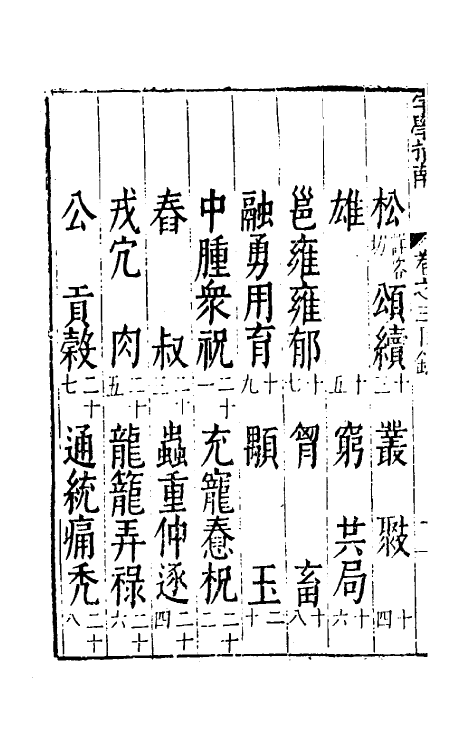 字學指南 卷之三目錄 二
松詳容切 頌續十三 叢 十四
雄 十五 窮 共局十六
邕雍雍郁十七 胷 畜十八
融勇用育十九 顒 玉二十
中腫衆祝二十一 充寵惷柷二十二
舂 叔二十三 蟲重仲逐二十四
戎宂 肉二十五 龍籠弄祿二十六
公 貢穀二十七 通統痛秃二十八